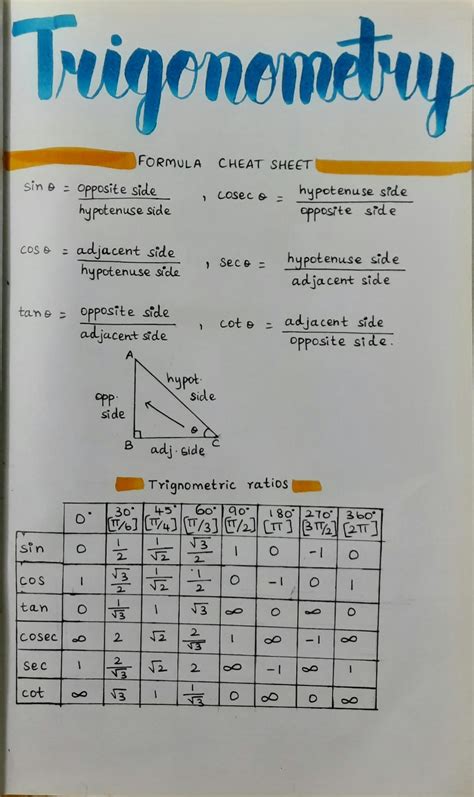 Trigonometry
FORMULA CHEAT SHEET
sin θ = opposite side / hypotenuse side , cosec θ = hypotenuse side / opposite side
cos θ = adjacent side / hypotenuse side , sec θ = hypotenuse side / adjacent side
tan θ = opposite side / adjacent side , cot θ = adjacent side / opposite side.
A
hypot. side
opp. side
θ
B C
adj. side
Trignometric ratios
0° 30° [π/6] 45° [π/4] 60° [π/3] 90° [π/2] 180° [π] 270° [3π/2] 360° [2π]
sin 0 1/2 1/√2 √3/2 1 0 -1 0
cos 1 √3/2 1/√2 1/2 0 -1 0 1
tan 0 1/√3 1 √3 ∞ 0 ∞ 0
cosec ∞ 2 √2 2/√3 1 ∞ -1 ∞
sec 1 2/√3 √2 2 ∞ -1 ∞ 1
cot ∞ √3 1 1/√3 0 ∞ 0 ∞